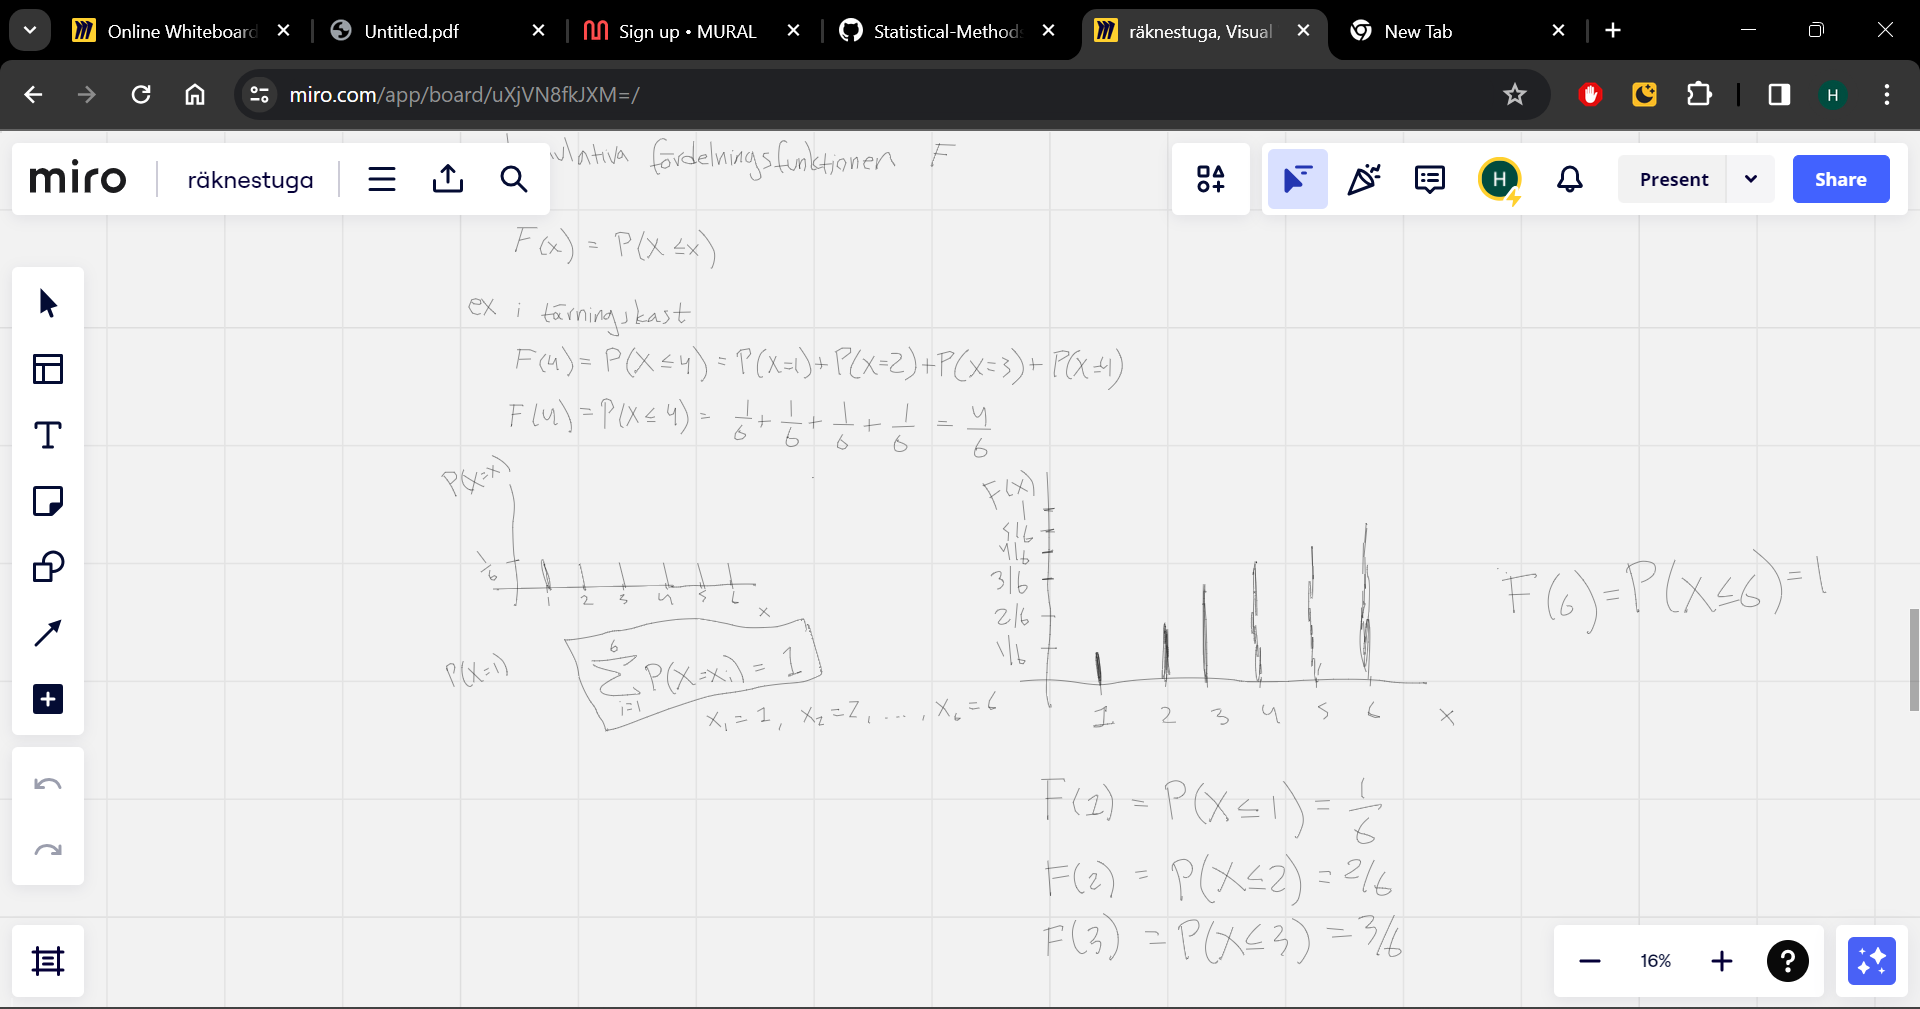 Online Whiteboard
Untitled.pdf
Sign up • MURAL
Statistical-Methods
räknestuga, Visual
New Tab
miro.com/app/board/uXjVN8fkJXM=/
H
miro
räknestuga
H
Present
Share
fördelningsfunktionen F
F(x) = P(X ≤ x)
ex i tärningskast
F(4) = P(X ≤ 4) = P(X=1) + P(X=2) + P(X=3) + P(X=4)
F(4) = P(X ≤ 4) = 1/6 + 1/6 + 1/6 + 1/6 = 4/6
P(X=x)
1/6
1 2 3 4 5 6
x
F(x)
1
5/6
4/6
3/6
2/6
1/6
1 2 3 4 5 6 x
F(6) = P(X ≤ 6) = 1
P(X=1)
6
∑ P(X=xi) = 1
i=1
x1 = 1, x2 = 2, ...., x6 = 6
F(1) = P(X ≤ 1) = 1/6
F(2) = P(X ≤ 2) = 2/6
F(3) = P(X ≤ 3) = 3/6
16%